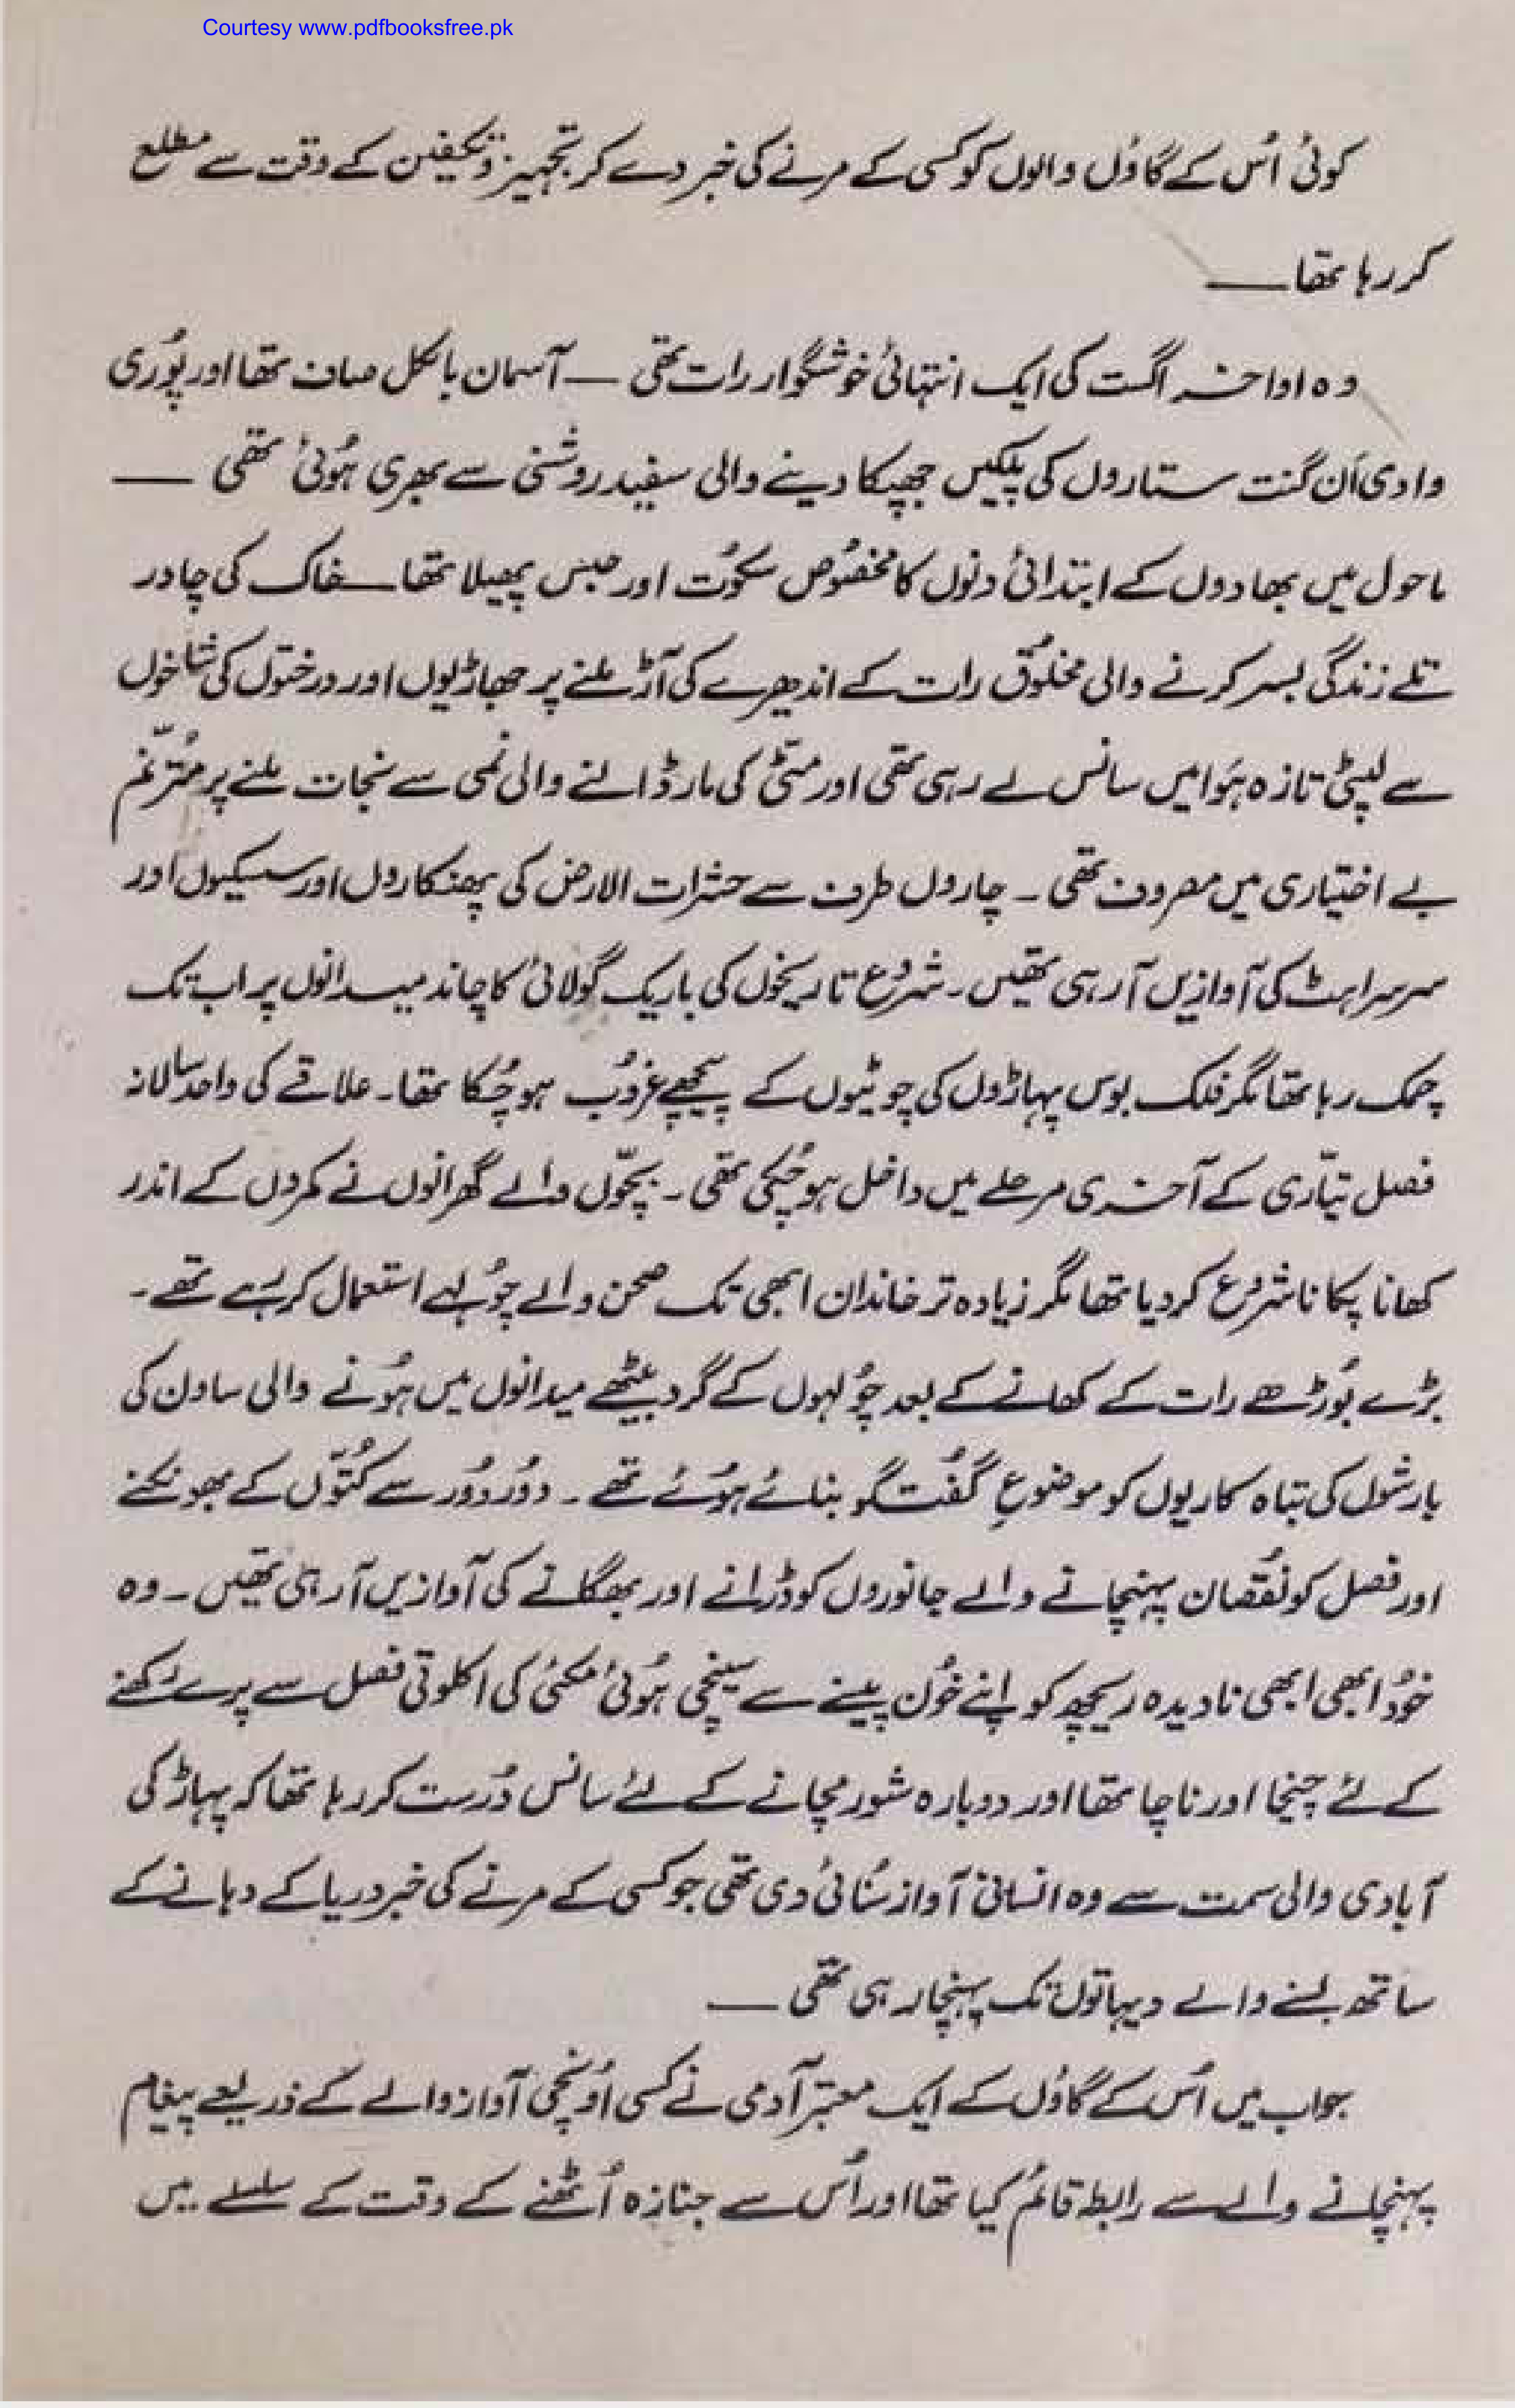 Courtesy www.pdfbooksfree.pk
کوئی اُس کے گاؤں والوں کو کسی کے مرنے کی خبر دے کر تجہیز و تکفین کے وقت سے مطلع
کر رہا تھا ــــ
وہ اواخر اگست کی ایک انتہائی خوشگوار رات تھی ــــ آسمان بالکل صاف تھا اور پُوری
وادی اَن گنت ستاروں کی پلکیں جھپکا دینے والی سفید روشنی سے بھری ہُوئی تھی ــــ
ماحول میں بھادوں کے ابتدائی دنوں کا مخصُوص سکُوت اور حبس پھیلا تھا ــــ خاک کی چادر
تلے زندگی بسر کرنے والی مخلُوق رات کے اندھیرے کی آڑ ملنے پر جھاڑیوں اور درختوں کی شاخوں
سے لپٹی تازہ ہَوا میں سانس لے رہی تھی اور مٹّی کی مار ڈالنے والی نمی سے نجات ملنے پر مُترنّم
بے اختیاری میں مصروف تھی ۔ چاروں طرف سے حشرات الارض کی پھنکاروں اور سسکیوں اور
سرسراہٹ کی آوازیں آ رہی تھیں ۔ شرُوع تاریخوں کی باریک گولائی کا چاند میدانوں پر اب تک
چمک رہا تھا مگر فلک بوس پہاڑوں کی چوٹیوں کے پیچھے غرُوب ہو چُکا تھا ۔ علاقے کی واحد سالانہ
فصل تیّاری کے آخری مرحلے میں داخل ہو چُکی تھی ۔ بچّوں والے گھرانوں نے کمروں کے اندر
کھانا پکانا شرُوع کر دیا تھا مگر زیادہ تر خاندان ابھی تک صحن والے چُولہے استعمال کر رہے تھے ۔
بڑے بُوڑھے رات کے کھانے کے بعد چُولہوں کے گرد بیٹھے میدانوں میں ہُونے والی ساون کی
بارشوں کی تباہ کاریوں کو موضوعِ گفُت گو بنائے ہُوئے تھے ۔ دُور دُور سے کُتّوں کے بھونکنے
اور فصل کو نُقصان پہنچانے والے جانوروں کو ڈرانے اور بھگانے کی آوازیں آ رہی تھیں ۔ وہ
خُود ابھی ابھی نادیدہ ریچھ کو اپنے خُون پسینے سے سینچی ہُوئی مکئی کی اکلوتی فصل سے پرے رکھنے
کے لئے چیخا اور ناچا تھا اور دوبارہ شور مچانے کے لئے سانس دُرست کر رہا تھا کہ پہاڑ کی
آبادی والی سمت سے وہ انسانی آواز سُنائی دی تھی جو کسی کے مرنے کی خبر دریا کے دہانے کے
ساتھ بسنے والے دیہاتوں تک پہنچا رہی تھی ــــ
جواب میں اُس کے گاؤں کے ایک معتبر آدمی نے کسی اُونچی آواز والے کے ذریعے پیغام
پہنچانے والے سے رابطہ قائم کیا تھا اور اُس سے جنازہ اُٹھنے کے وقت کے سلسلے میں